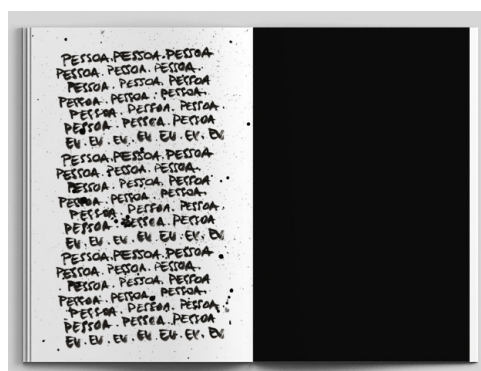 PESSOA.PESSOA.PESSOA
PESSOA.PESSOA.PESSOA.
PESSOA.PESSOA.PESSOA
PESSOA.PESSOA.PESSOA.
PESSOA.PESSOA.PESSOA.
PESSOA.PESSOA.PESSOA
EU.EU.EU.EU.EU.EU.EU
PESSOA.PESSOA.PESSOA
PESSOA.PESSOA.PESSOA.
PESSOA.PESSOA.PESSOA
PESSOA.PESSOA.PESSOA.
PESSOA.PESSOA.PESSOA.
PESSOA.PESSOA.PESSOA
EU.EU.EU.EU.EU.EU.EU
PESSOA.PESSOA.PESSOA
PESSOA.PESSOA.PESSOA.
PESSOA.PESSOA.PESSOA
PESSOA.PESSOA.PESSOA.
PESSOA.PESSOA.PESSOA.
PESSOA.PESSOA.PESSOA
EU.EU.EU.EU.EU.EU.EU